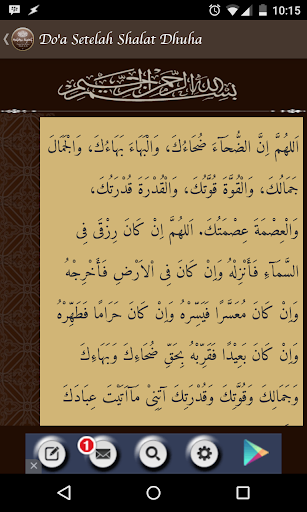 10:15
Do'a Setelah Shalat Dhuha
بسم الله الرحمن الرحيم
اَللهُمَّ اِنَّ الضُّحَآءَ ضُحَاءُكَ، وَالْبَهَاءَ بَهَاءُكَ، وَالْجَمَالَ
جَمَالُكَ، وَالْقُوَّةَ قُوَّتُكَ، وَالْقُدْرَةَ قُدْرَتُكَ،
وَالْعِصْمَةَ عِصْمَتُكَ. اَللهُمَّ اِنْ كَانَ رِزْقَى فِى
السَّمَآءِ فَأَنْزِلْهُ وَاِنْ كَانَ فِى اْلاَرْضِ فَأَخْرِجْهُ
وَاِنْ كَانَ مُعَسَّرًا فَيَسِّرْهُ وَاِنْ كَانَ حَرَامًا فَطَهِّرْهُ
وَاِنْ كَانَ بَعِيْدًا فَقَرِّبْهُ بِحَقِّ ضُحَاءِكَ وَبَهَاءِكَ
وَجَمَالِكَ وَقُوَّتِكَ وَقُدْرَتِكَ آتِنِىْ مَآاَتَيْتَ عِبَادَكَ
1